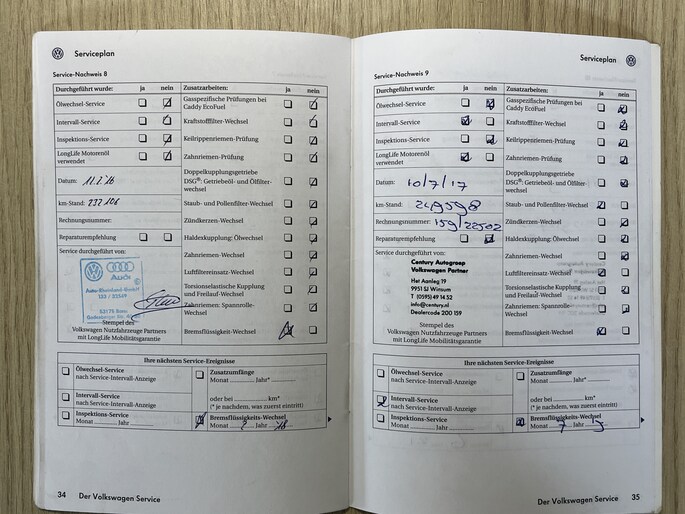 Serviceplan
Service-Nachweis 8
Durchgeführt wurde: ja nein
Ölwechsel-Service
Intervall-Service
Inspektions-Service
LongLife Motorenöl
verwendet
Datum: 11.2.16
km-Stand: 232 106
Rechnungsnummer:
Reparaturempfehlung
Service durchgeführt von:
Audi
Auto-Rheinland-GmbH
53175 Bonn
Stempel des
Volkswagen Nutzfahrzeuge Partners
mit LongLife Mobilitätsgarantie
Zusatzarbeiten: ja nein
Gasspezifische Prüfungen bei
Caddy EcoFuel
Kraftstofffilter-Wechsel
Keilrippenriemen-Prüfung
Zahnriemen-Prüfung
Doppelkupplungsgetriebe
DSG®: Getriebeöl- und Ölfilter-
wechsel
Staub- und Pollenfilter-Wechsel
Zündkerzen-Wechsel
Haldexkupplung: Ölwechsel
Zahnriemen-Wechsel
Luftfiltereinsatz-Wechsel
Torsionselastische Kupplung
und Freilauf-Wechsel
Zahnriemen: Spannrolle-
Wechsel
Bremsflüssigkeits-Wechsel
Ihre nächsten Service-Ereignisse
Ölwechsel-Service
nach Service-Intervall-Anzeige
Intervall-Service
nach Service-Intervall-Anzeige
Inspektions-Service
Monat Jahr
Zusatzumfänge
Monat Jahr*
oder bei km*
(* je nachdem, was zuerst eintritt)
Bremsflüssigkeits-Wechsel
Monat 2 Jahr 18
34 Der Volkswagen Service
Serviceplan
Service-Nachweis 9
Durchgeführt wurde: ja nein
Ölwechsel-Service
Intervall-Service
Inspektions-Service
LongLife Motorenöl
verwendet
Datum: 10/7/17
km-Stand: 249598
Rechnungsnummer: 159/22502
Reparaturempfehlung
Service durchgeführt von:
Century Autogroep
Volkswagen Partner
Het Aanleg 19
9951 SJ Winsum
T (0595) 49 14 52
info@century.nl
Dealercode 200 159
Stempel des
Volkswagen Nutzfahrzeuge Partners
mit LongLife Mobilitätsgarantie
Zusatzarbeiten: ja nein
Gasspezifische Prüfungen bei
Caddy EcoFuel
Kraftstofffilter-Wechsel
Keilrippenriemen-Prüfung
Zahnriemen-Prüfung
Doppelkupplungsgetriebe
DSG®: Getriebeöl- und Ölfilter-
wechsel
Staub- und Pollenfilter-Wechsel
Zündkerzen-Wechsel
Haldexkupplung: Ölwechsel
Zahnriemen-Wechsel
Luftfiltereinsatz-Wechsel
Torsionselastische Kupplung
und Freilauf-Wechsel
Zahnriemen: Spannrolle-
Wechsel
Bremsflüssigkeits-Wechsel
Ihre nächsten Service-Ereignisse
Ölwechsel-Service
nach Service-Intervall-Anzeige
Intervall-Service
nach Service-Intervall-Anzeige
Inspektions-Service
Monat Jahr
Zusatzumfänge
Monat Jahr*
oder bei km*
(* je nachdem, was zuerst eintritt)
Bremsflüssigkeits-Wechsel
Monat 7 Jahr
Der Volkswagen Service 35